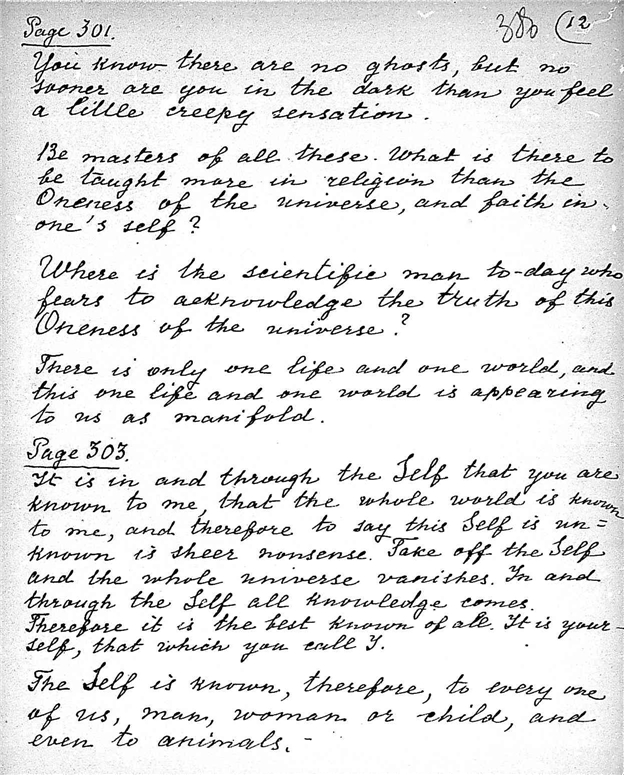 Page 301.
380 (12
You know there are no ghosts, but no
sooner are you in the dark than you feel
a little creepy sensation.
Be masters of all these. What is there to
be taught more in religion than the
Oneness of the universe, and faith in
one's self?
Where is the scientific man to-day who
fears to acknowledge the truth of this
Oneness of the universe?
There is only one life and one world, and
this one life and one world is appearing
to us as manifold.
Page 303.
It is in and through the Self that you are
known to me, that the whole world is known
to me, and therefore to say this Self is un=
known is sheer nonsense. Take off the Self
and the whole universe vanishes. In and
through the Self all knowledge comes.
Therefore it is the best known of all. It is your-
self, that which you call I.
The Self is known, therefore, to every one
of us, man, woman or child, and
even to animals.-